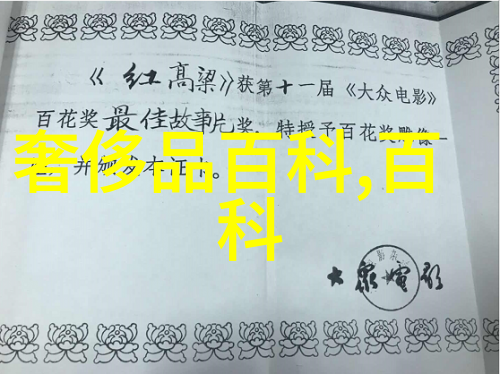 《红高粱》获第十一届《大众电影》
百花奖最佳故事片奖，特授予百花奖雕像一
并颁发本证书。
奢侈品百科,百
科
大众电影